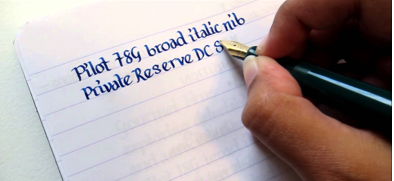 Pilot 78G broad italic nib
Private Reserve DC S